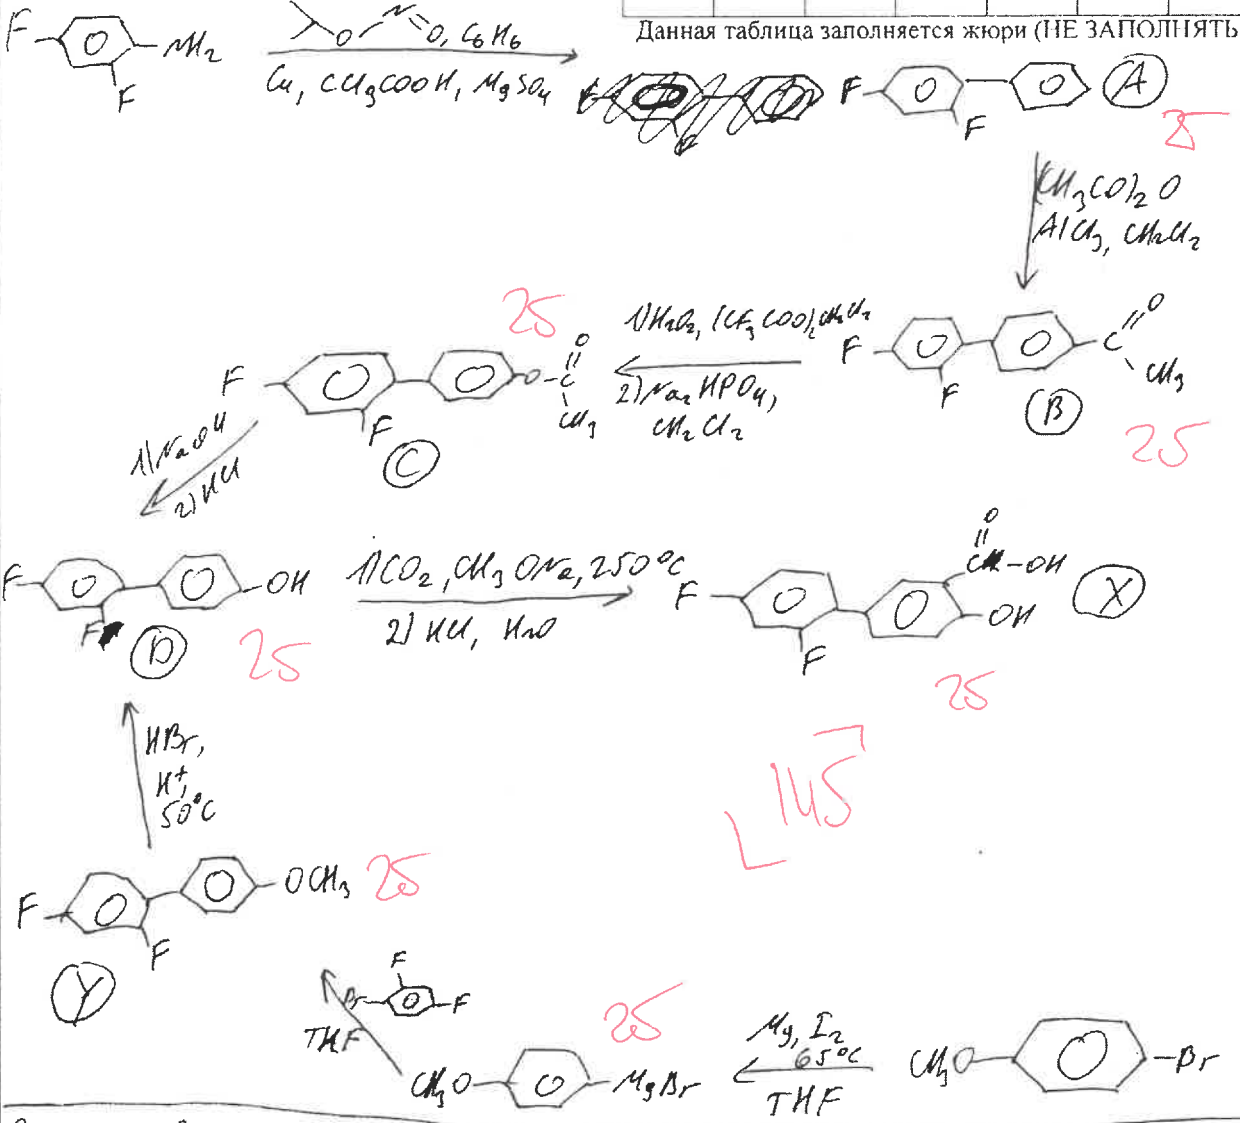 Данная таблица заполняется жюри (НЕ ЗАПОЛНЯТЬ
F
NH2
F
O N=O, C6H6
Cu, CCl3COOH, MgSO4
F
F
A
25
(CH3CO)2O
AlCl3, CH2Cl2
F
F
C
O
CH3
B
25
1) H2O2, (CF3COO)2 CH2Cl2
2) Na2HPO4,
CH2Cl2
25
F
F
O-C
O
CH3
C
1) NaOH
2) HCl
F
F
OH
D
25
1) CO2, CH3ONa, 250°C
2) HCl, H2O
F
F
O
C-OH
OH
X
25
145
HBr,
H+,
50°C
F
F
OCH3
25
Y
F
Br
F
THF
CH3O
MgBr
25
Mg, I2
65°C
THF
CH3O
Br